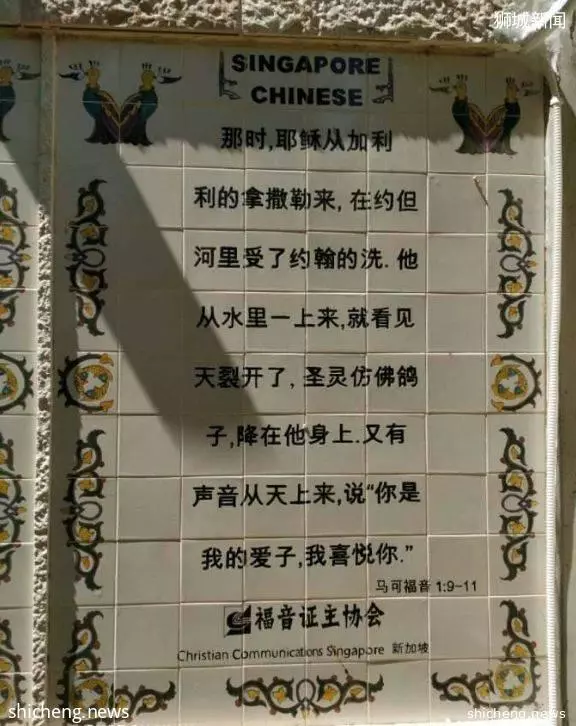 狮城新闻
SINGAPORE
CHINESE
那时,耶稣从加利
利的拿撒勒来, 在约但
河里受了约翰的洗. 他
从水里一上来,就看见
天裂开了, 圣灵仿佛鸽
子,降在他身上.又有
声音从天上来,说“你是
我的爱子,我喜悦你.”
马可福音 1:9-11
福音证主协会
Christian Communications Singapore 新加坡
shicheng.news
shicheng.news